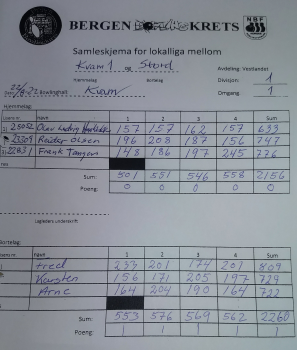 BERGEN KRETS
NBF
Samleskjema for lokalliga mellom
Kvam 1 og Stord Avdeling: Vestlandet
Hjemmelag Bortelag Divisjon: 1
Dato: 22/9-22 Bowlinghall: Kvam Omgang: 1
Hjemmelag:
Navn 1 2 3 4 Sum
157 157 162 157 633
Reidar Olsen 196 208 187 156 747
Frank Tangen 148 186 197 245 776
Sum: 501 551 546 558 2156
Poeng: 0 0 0 0 0
Lagleders underskrift
Bortelag:
Navn 1 2 3 4 Sum
Fred 233 201 174 201 809
Karsten 156 171 205 197 729
Arne 164 204 190 164 722
Sum: 553 576 569 562 2260
Poeng: 1 1 1 1